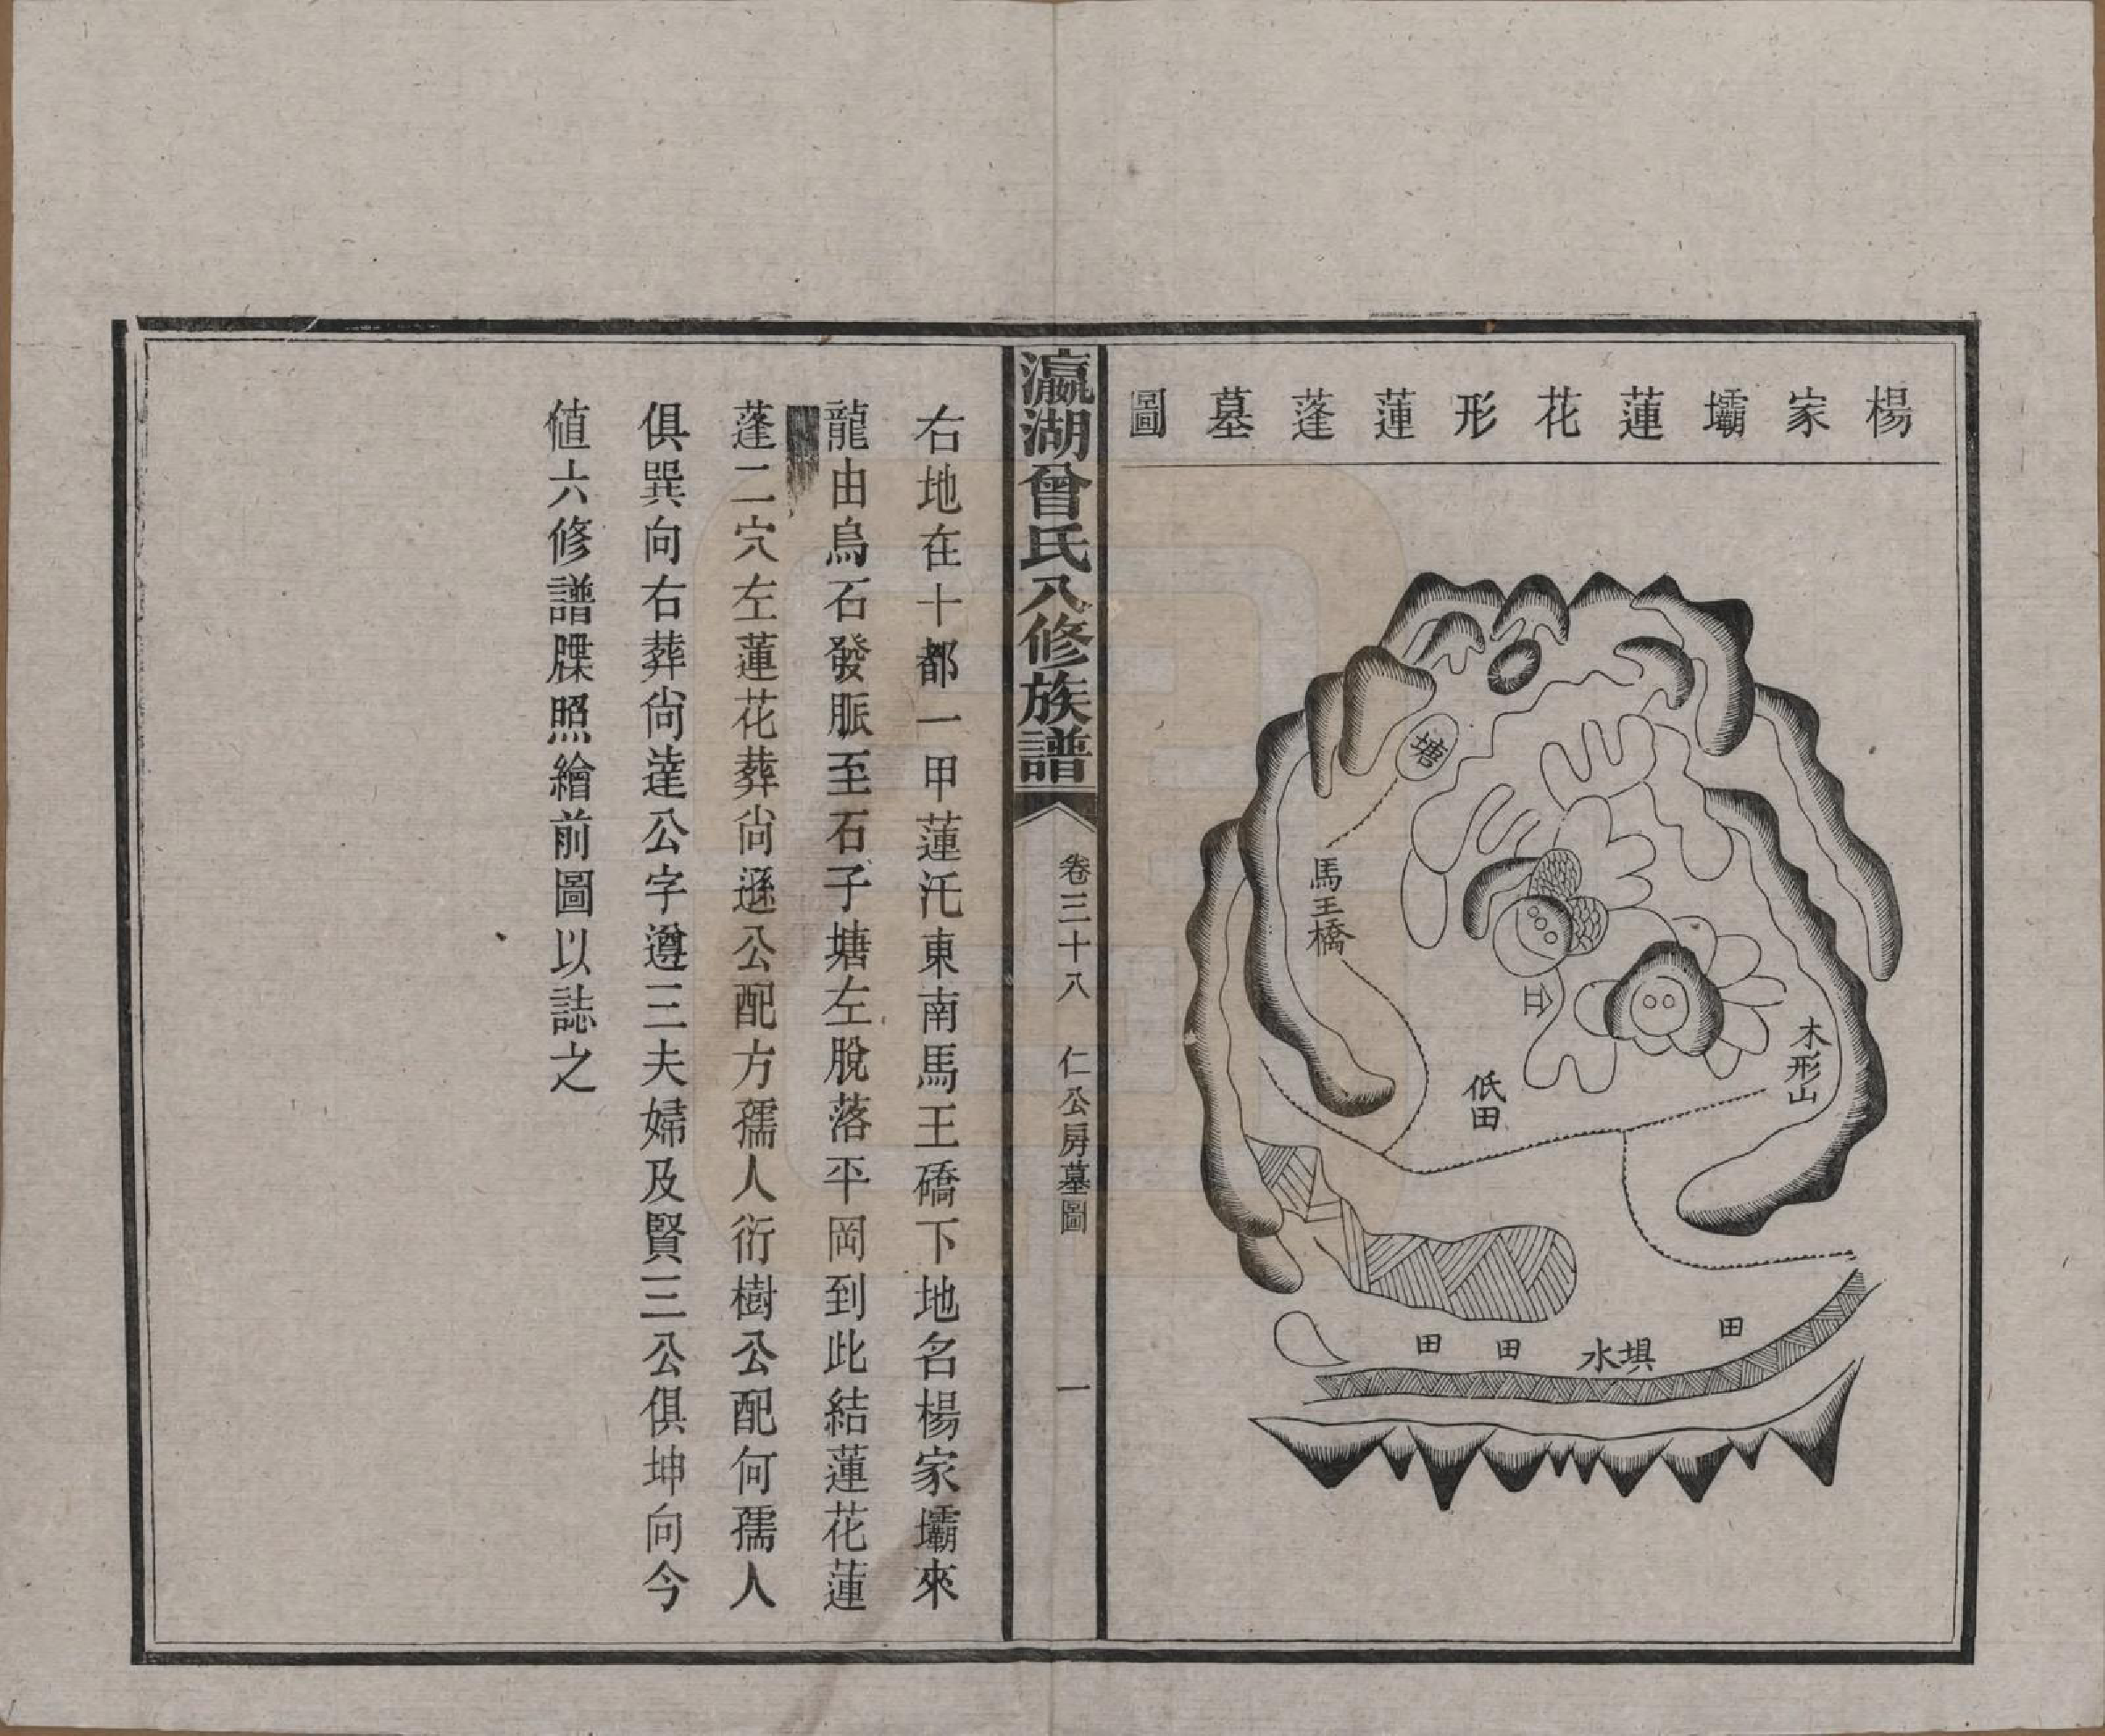 楊家壩蓮花形蓮蓬墓圖
塘
馬王橋
木形山
低田
田
水垻
田
田
瀛湖曾氏八修族譜
卷三十八
仁公房墓圖
一
右地在十都一甲蓮汑東南馬王礄下地名楊家壩來
龍由烏石發脈至石子塘左脫落平岡到此結蓮花蓮
蓬二穴左蓮花葬尙遜公配方孺人衍樹公配何孺人
俱巽向右葬尙達公字遵三夫婦及賢三公俱坤向今
値六修譜牒照繪前圖以誌之